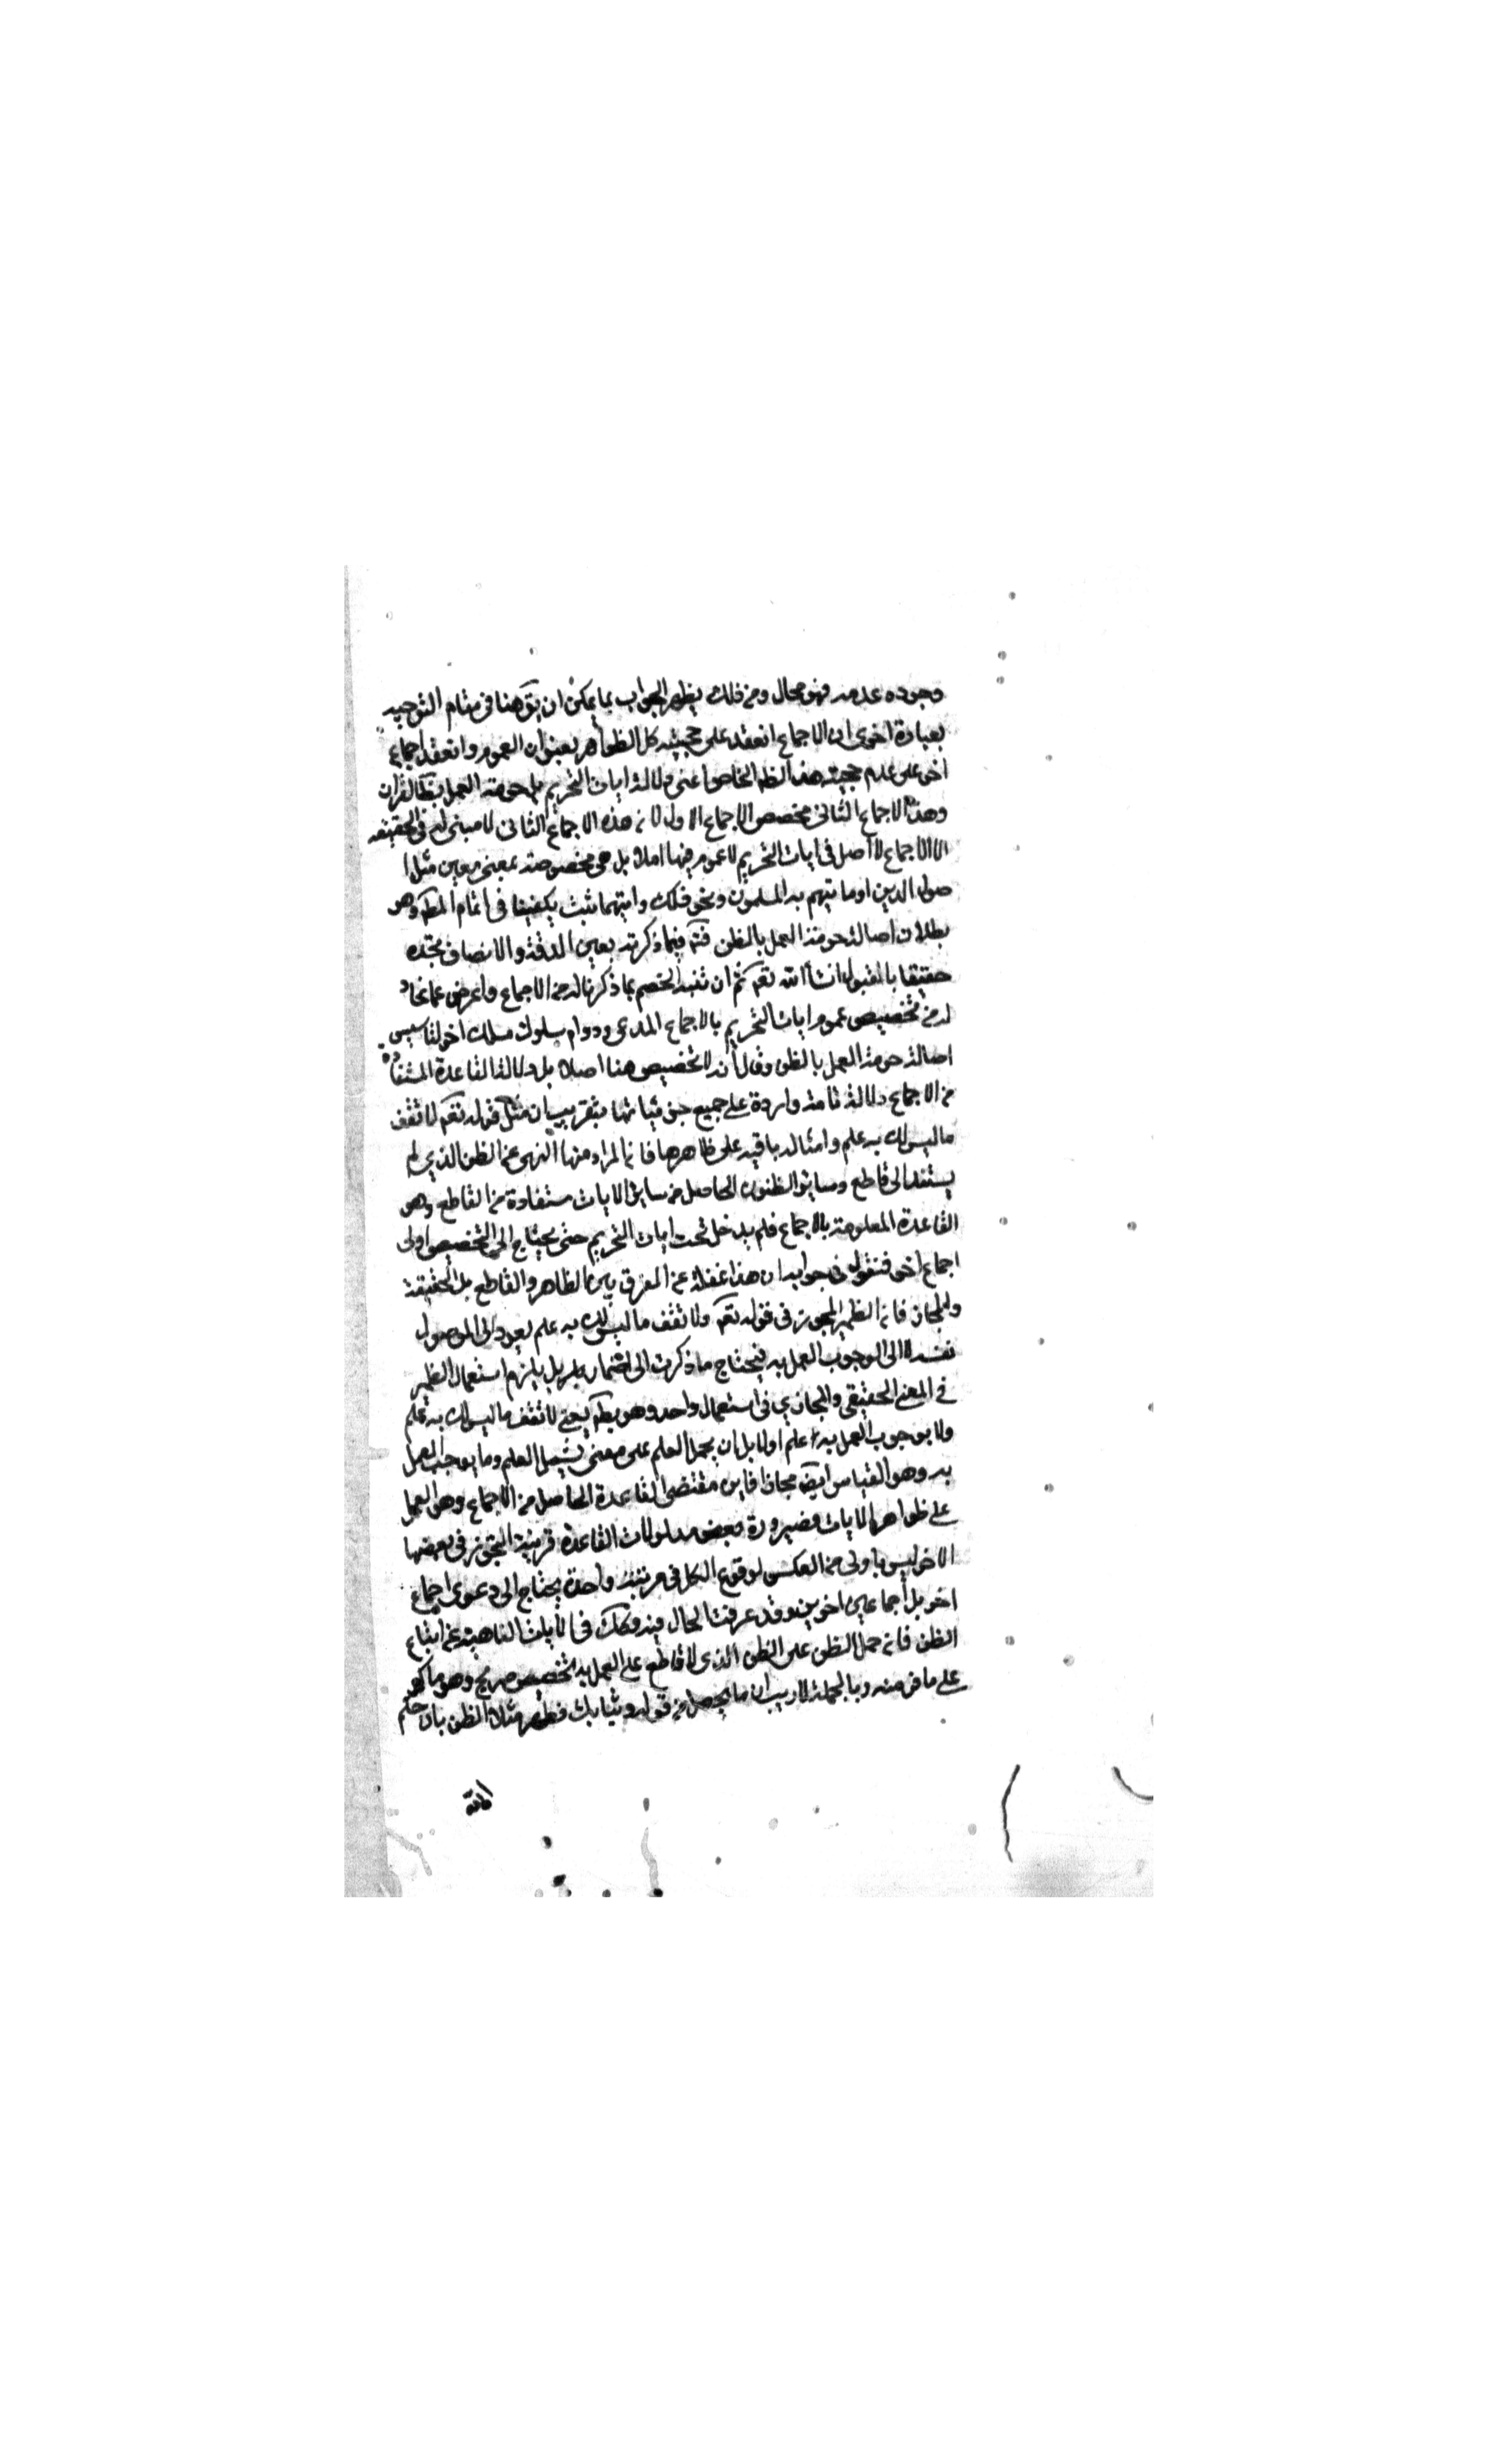 وجوده عدمه فهو محال ومن ذلك يظهر الجواب بما يمكن ان يق هنا فى مقام التوجيه
بعبارة اخرى ان الاجماع انعقد على حجية كل الظواهر بعنوان العموم وانعقد اجماع
اخر على عدم حجية هذا الظن الخاص اعنى دلالة ايات التحريم على حرمة العمل بظ القران
وهذا الاجماع الثانى مخصص الاجماع الاول لان هذه الاجماع الثانى لا مبنى له فى الحقيقة
الا الاجماع لا اصل فى ايات التحريم لا عموم فيها اصلا بل هى مخصوصة بمعنى معين مثل ا
صول الدين او ما يتهم به المسلمون ونحو ذلك وايتهما يثبت يكفينا فى اتمام المط وهو
بطلان اصالة حرمة العمل بالظن فتم فيما ذكرته بعين الدقة والانصاف تجده
حقيقا بالقبول انشاالله تعم ثم ان تنبه الخصم بما ذكرناله من الاجماع واعرض عما نحاد
له من تخصيص عموم ايات التحريم بالاجماع المدعى ودوام سلوك مسلك اخر لتاسيس
اصالة حرمة العمل بالظن وقال انه لا تخصيص هنا اصلا بل دلالة القاعدة المستفادة
من الاجماع دلالة تامة واردة على جميع جزئياتها بتقريب ان مثل قوله تعم لا تقف
ما ليس لك به علم وامثاله باقية على ظاهرها فان المراد منها النهى عن الظن الذى لم
يستند الى قاطع وساير الظنون الحاصل من ساير الايات مستفادة من القاطع وهو
القاعدة المعلومة بالاجماع فلم يدخل تحت ايات التحريم حتى يحتاج الى التخصيص اولى
اجماع اخر فنقول فى جوابه ان هذا غفلة عن الفرق بين الظاهر والقاطع بل الحقيقة
والمجاز فان الظمير المجرور فى قوله تعم ولا تقف ما ليس لك به علم يعود الى الموصول
نفسه لا الى الوجوب العمل به فيحتاج ما ذكرت الى اضمار بل يلزم استعمال الظمير
فى المعنى الحقيقى والمجازى فى استعمال واحد وهو بط يعنى لا تقف ما ليس لك به علم
ولا بوجوب العمل به علم اولا بل ان يحمل العلم على معنى يشمل العلم وما يوجب العمل
به وهو القياس ايض مجاز فاين مقتضى القاعدة الحاصل من الاجماع وهو العمل
على ظواهر الايات فصيرورة بعض مدلولات القاعدة قرينة التجوز فى بعضها
الاخر ليس باولى من العكس لوقوع الكل فى مرتبة واحدة يحتاج الى دعوى اجماع
اخر بل اجماعين اخرين وقد عرفت الحال فيه وكك فى الايات الناهية عن اتباع
الظن فان حمل الظن على الظن الذى لا قاطع على العمل به تخصيص صريح وهو ما كر
على ما فر منه وبالجملة لا ريب ان ما يحصل من قوله وثيابك فطهر مثلا الظن بان حكم
الله